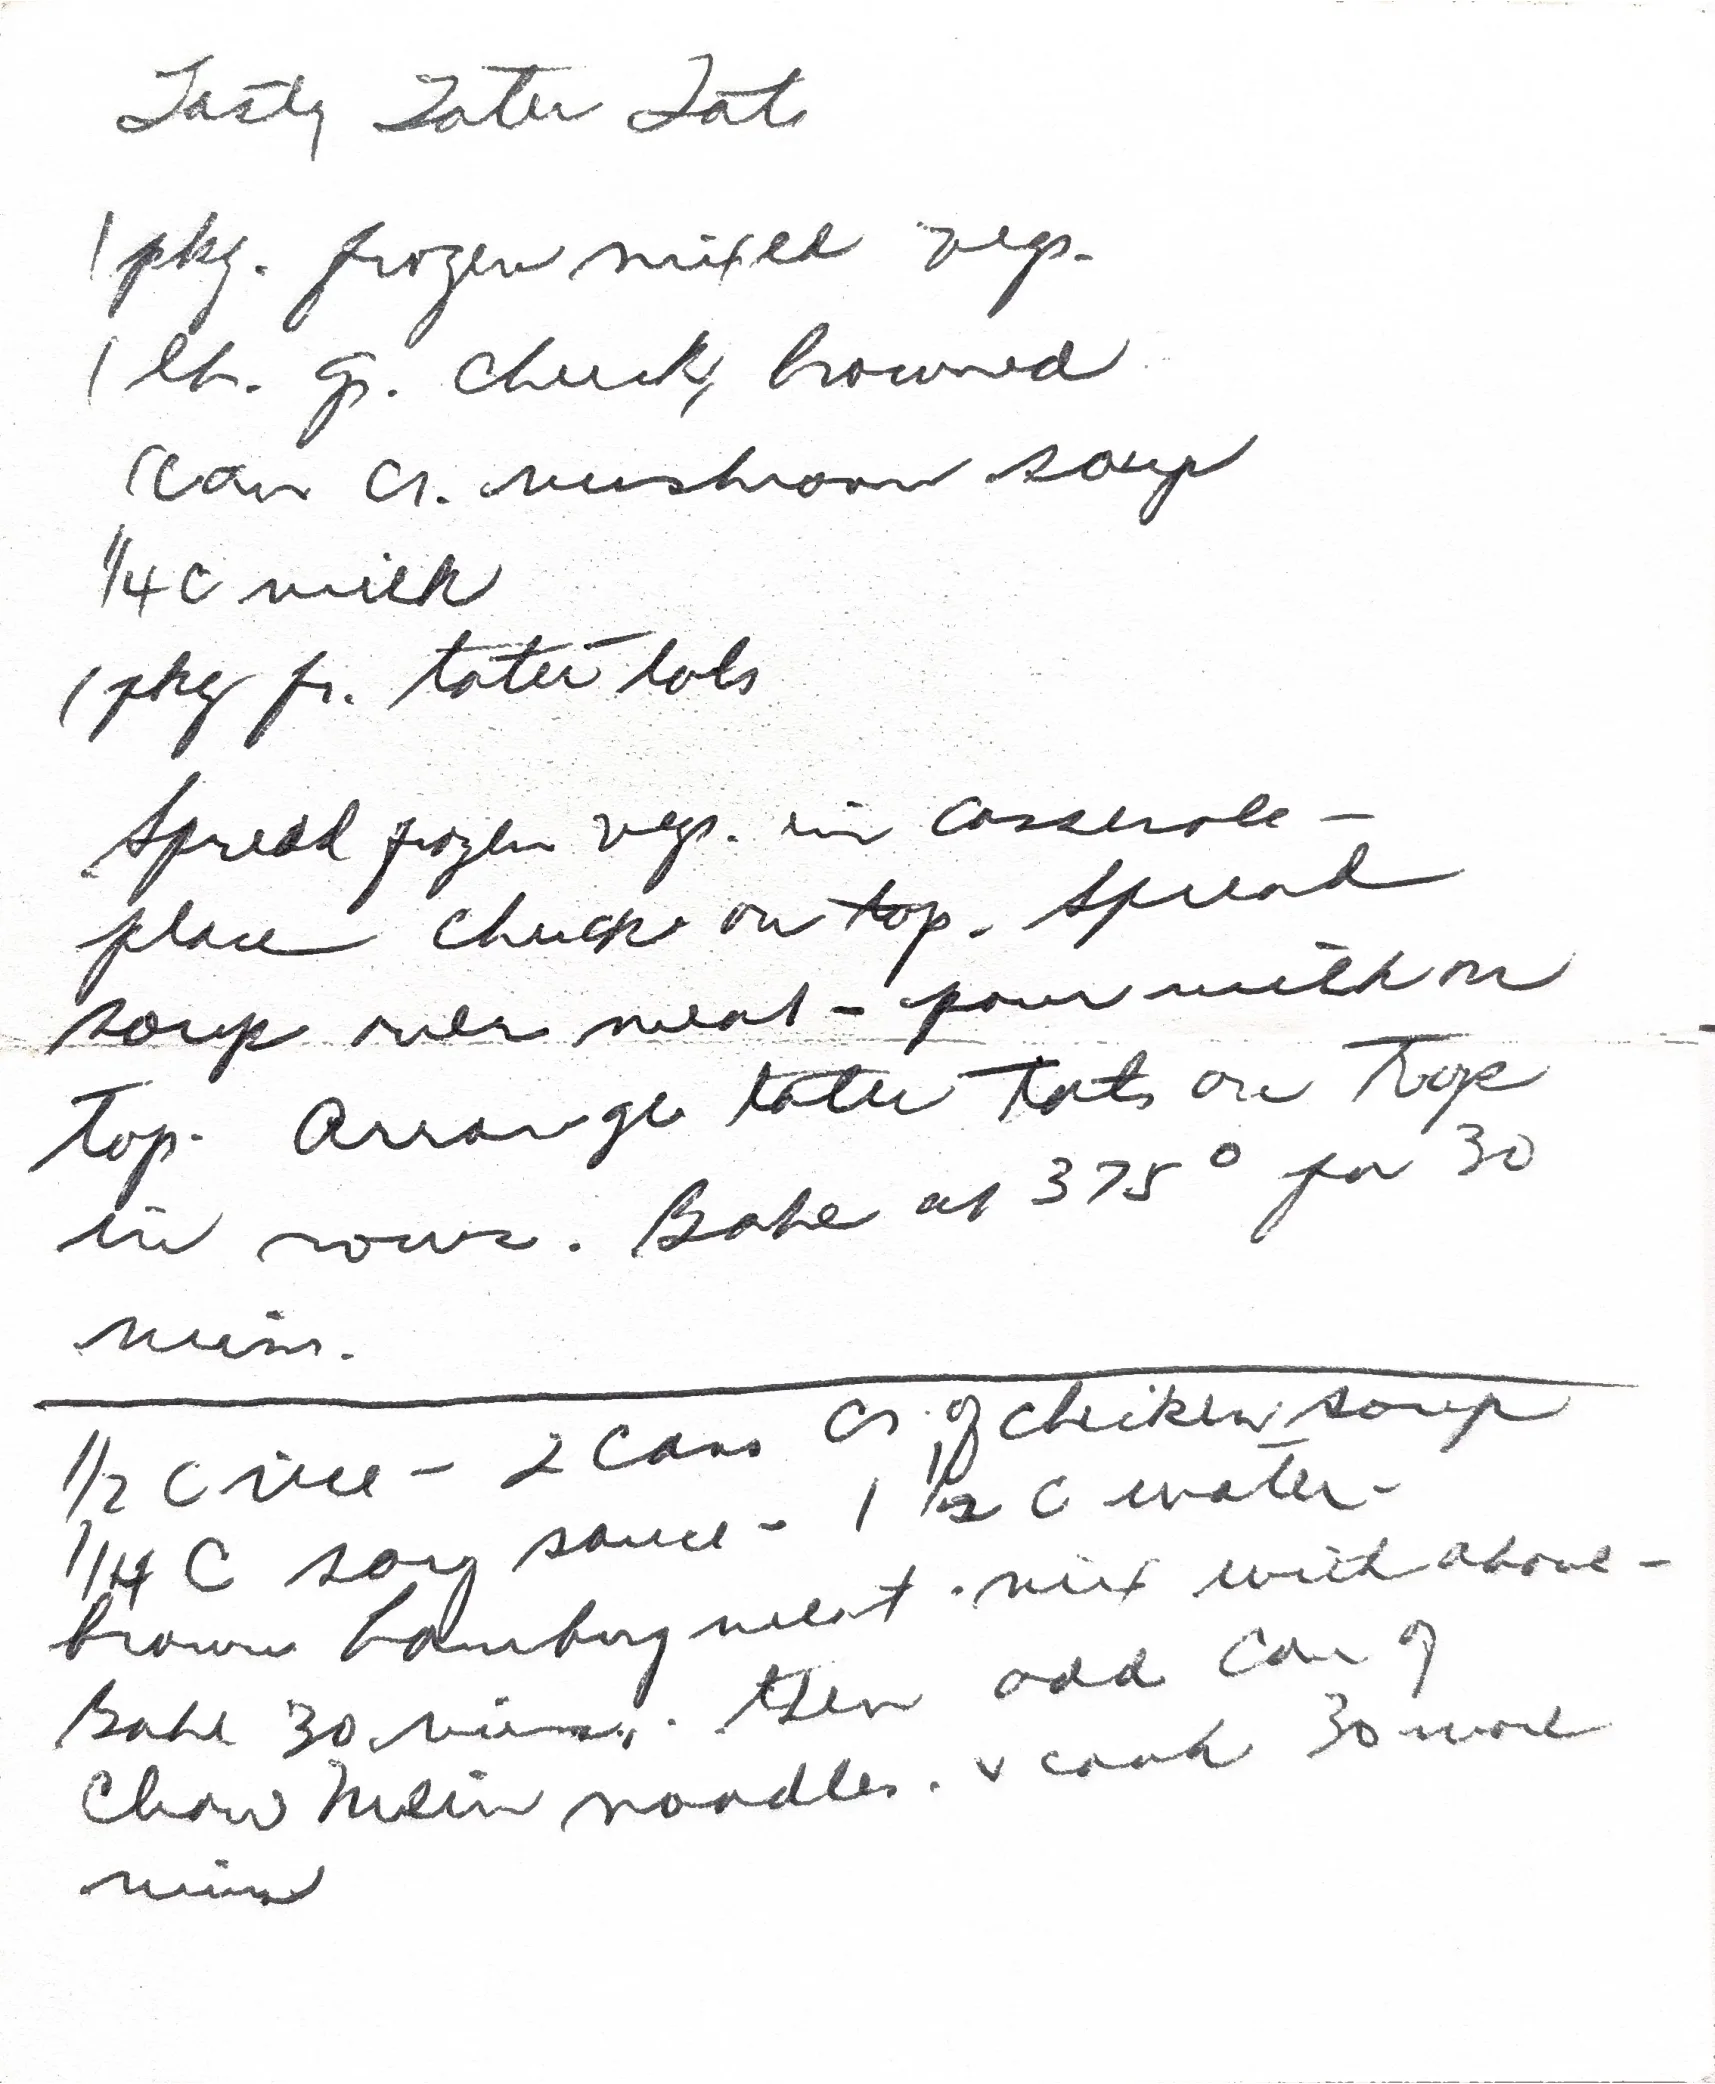 Tasty Tater Tots
1 pkg. frozen mixed vegs.
1 lb. gr. chuck, browned
1 can cr. mushroom soup
1/4 c milk
1 pkg fr. tater tots
Spread frozen vegs. in casserole -
place chuck on top. Spread
soup over meat - pour milk on
top. Arrange tater tots on top
in rows. Bake at 375° for 30
min.
1/2 C rice - 2 cans cr. of chicken soup
1/4 C soy sauce - 1 1/2 C water -
brown hamburg meat. mix with above -
Bake 30 min. then add can of
Chow Mein noodles. & cook 30 more
min